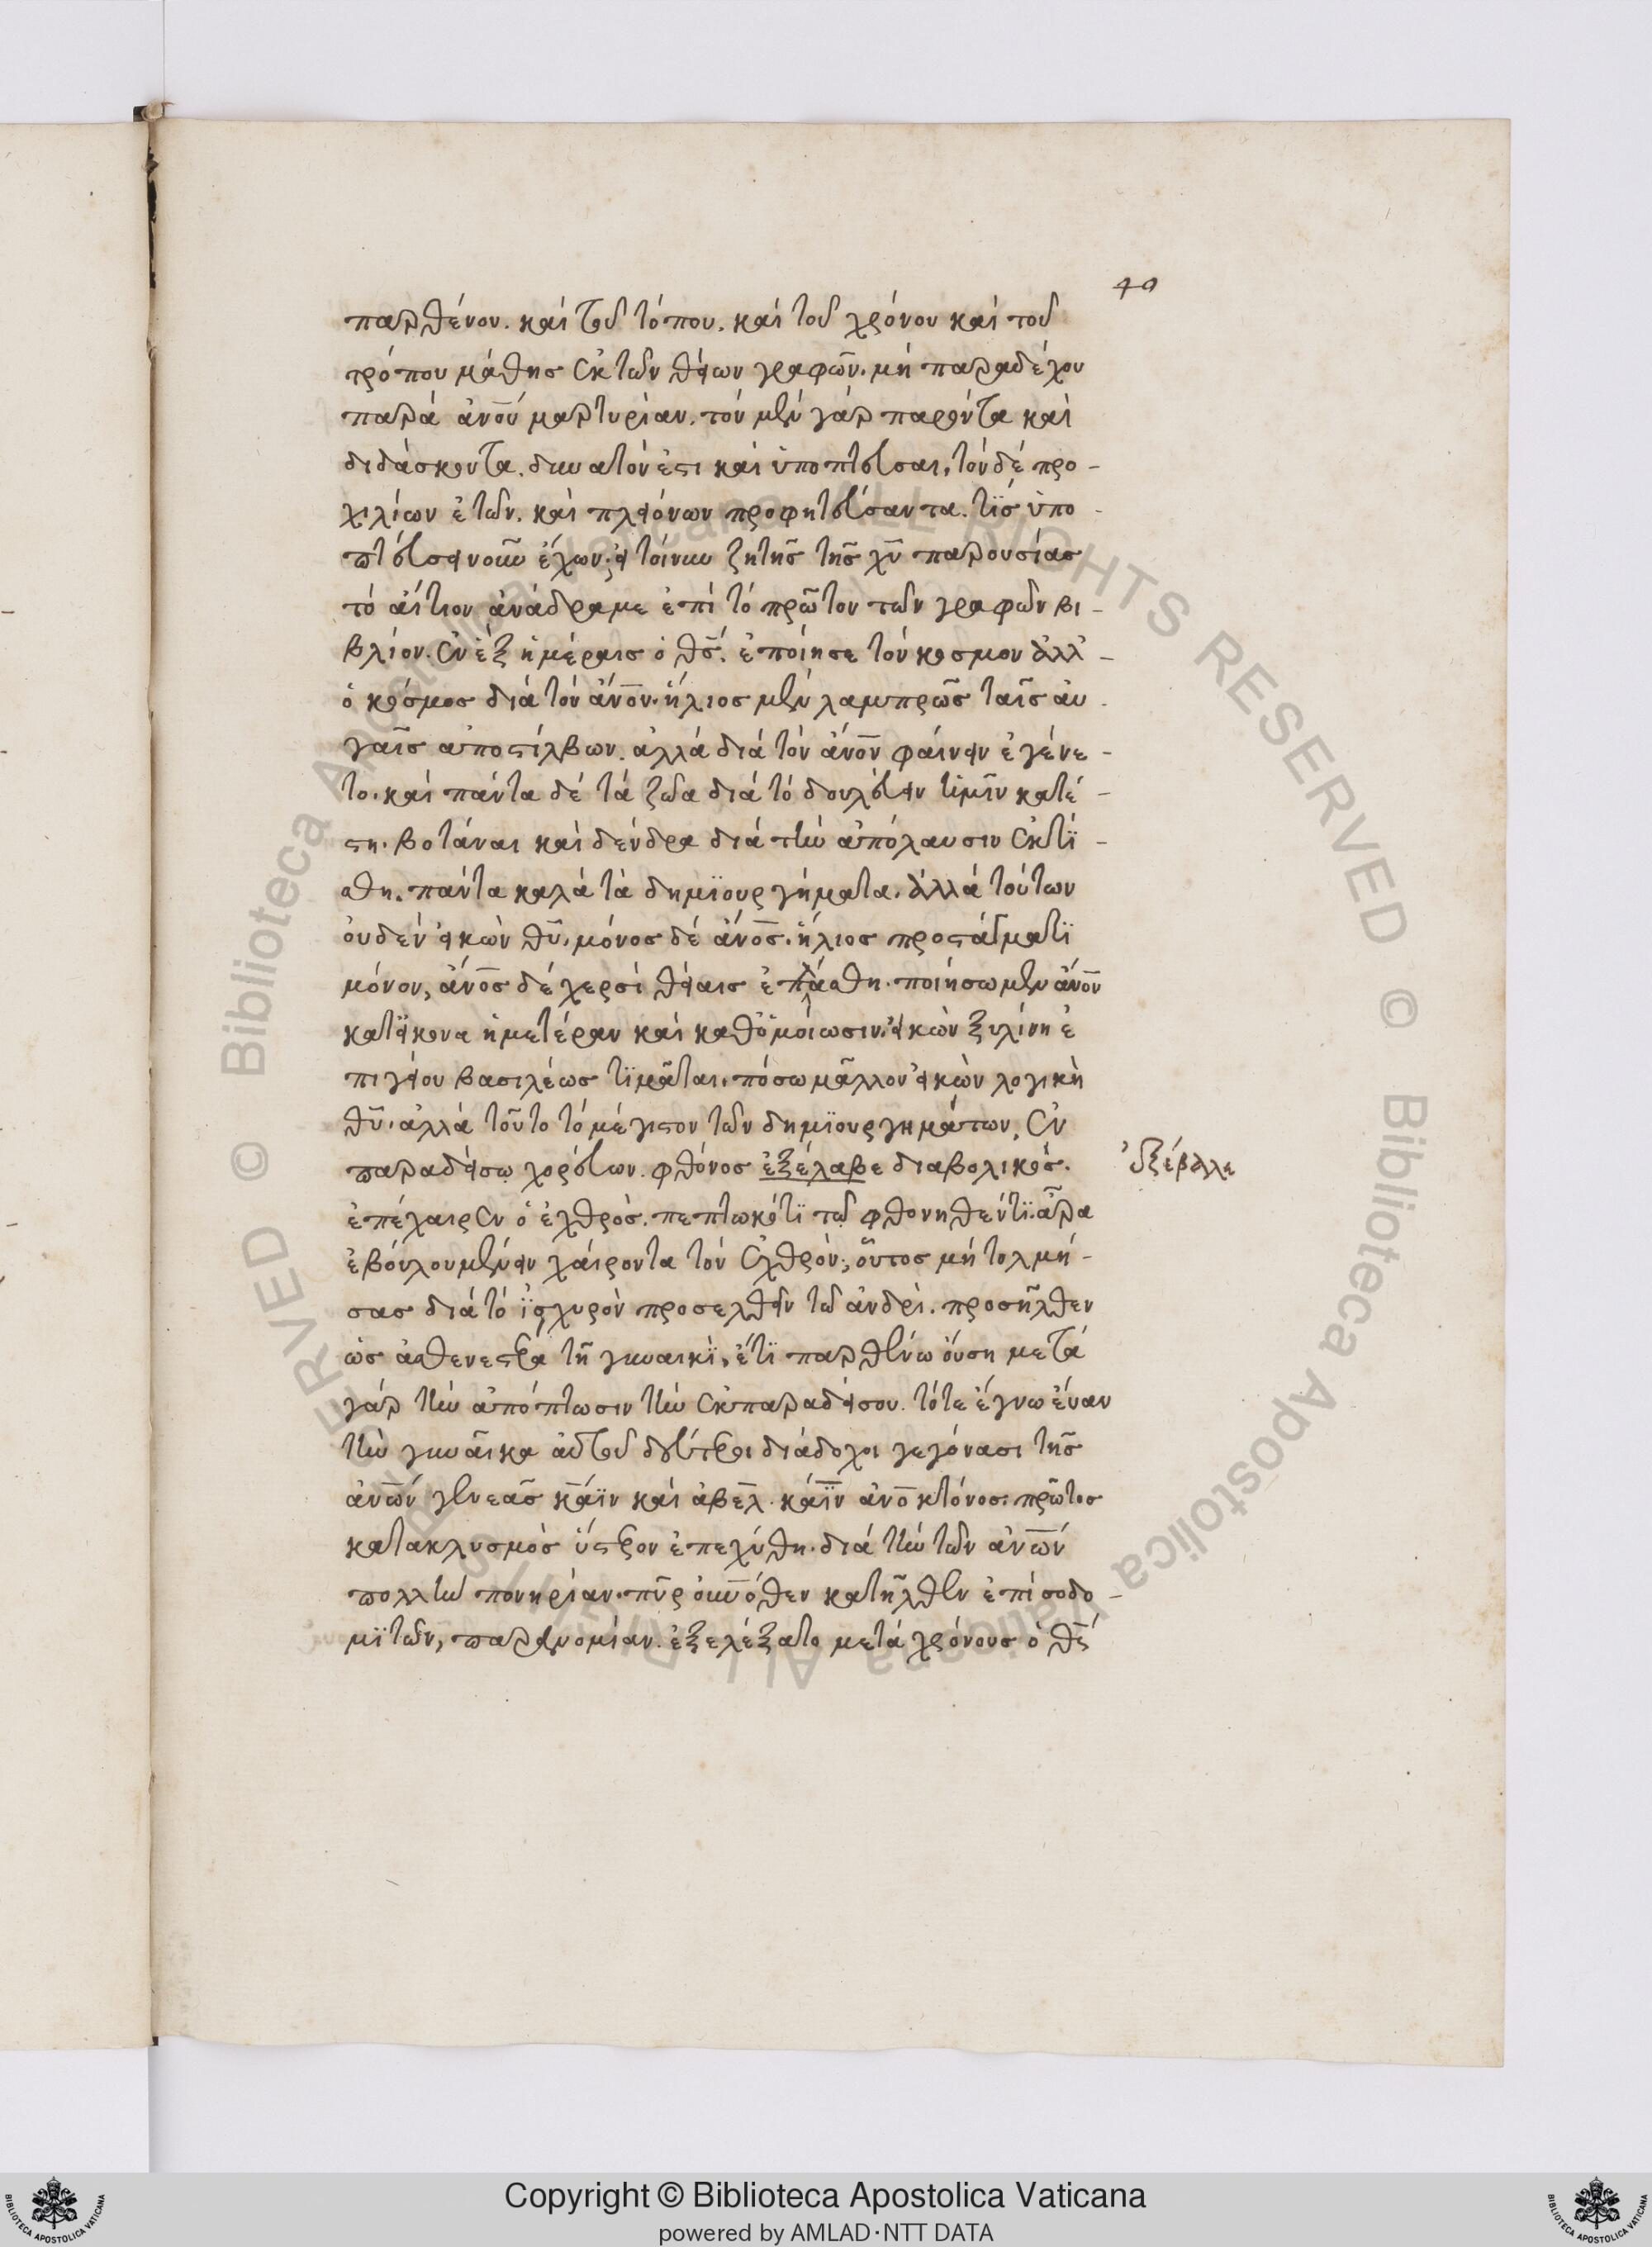 40
παρθένου. καὶ τοῦ τόπου. καὶ τοῦ χρόνου καὶ τοῦ
τρόπου μάθης ἐκ τῶν θείων γραφῶν. μὴ παραδέχου
παρὰ ἀνου μαρτυρίαν. τὸν μὲν γὰρ παρόντα καὶ
διδάσκοντα. δυνατόν ἐστι καὶ ὑποπτεῦσαι, τὸν δὲ προ-
χιλίων ἐτῶν. καὶ πλειόνων προφητεύσαντα. τίς ὑπο-
πτεύσει νοῦν ἔχων; εἰ τοίνυν ζητῆς τῆς χυ παρουσίας
τὸ αἴτιον ἀνάδραμε ἐπὶ τὸ πρῶτον τῶν γραφῶν βι-
βλίον. ἐν ἐξ ἡμέραις ὁ θς. ἐποίησε τὸν κόσμον ἀλλ-
ὁ κόσμος διὰ τὸν ἄνον. ἥλιος μὲν λαμπρῶς ταῖς αὐ-
γαῖς ἀποστίλβων. ἀλλὰ διὰ τὸν ἄνον φαίνειν ἐγένε-
το. καὶ πάντα δὲ τὰ ζῶα διὰ τὸ δουλεύειν ἡμῖν κατέ-
στη. βοτάναι καὶ δένδρα διὰ τὴν ἀπόλαυσιν ἐκτί-
σθη. πάντα καλὰ τὰ δημϊουργήματα. ἀλλὰ τούτων
οὐδὲν εἰκὼν θυ. μόνος δὲ ἄνος. ἥλιος προστάγματϊ
μόνον, ἄνος δὲ χερσὶ θείαις ἐπλάσθη. ποιήσωμεν ἄνον
κατεἰκονα ἡμετέραν καὶ καθὁμοίωσιν. εἰκὼν ξυλίνη ἐ
πιγείου βασιλέως τϊμᾶται. πόσω μᾶλλον εἰκὼν λογικὴ
θυ. ἀλλὰ τοῦτο τὸ μέγιστον τῶν δημϊουργημάτων, ἐν
παραδείσῳ χορεύων. φθόνος ἐξέλαβε διαβολικός.
ἐξέβαλλε
ἐπέχαιρεν ὁ ἐχθρός. πεπτωκότϊ τῷ φθονηθέντϊ. ἆρα
ἐβούλου μένειν χαίροντα τὸν ἐχθρόν; οὗτος μὴ τολμή-
σας διὰ τὸ ἰσχυρὸν προσελθεῖν τῷ ἀνδρί. προσῆλθεν
ὡς ἀσθενεστέρα τῇ γυναικϊ, ἔτϊ παρθένω οὔση μετὰ
γὰρ τὴν ἀπόπτωσιν τὴν ἐκ παραδείσου. τότε ἔγνω εὔαν
τὴν γυναῖκα αὐτοῦ δεύτεροι διάδοχοι γεγόνασι τῆς
ἀνων γενεᾶς κάϊν καὶ ἀβελ. κάϊν ἀνοκτόνος. πρῶτος
κατακλυσμὸς ὕστερον ἐπεχύθη. διὰ τὴν τῶν ἀνων
πολλὴν πονηρίαν. πῦρ οὐνόθεν κατῆλθεν ἐπὶ σοδο-
μϊτῶν, παρανομίαν. ἐξελέξατο μετὰ χρόνους ὁ θς
Copyright © Biblioteca Apostolica Vaticana
powered by AMLAD·NTT DATA